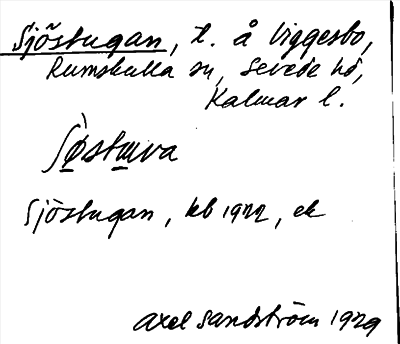 Sjöstugan, t. å Viggesbo,
Rumskulla sn, Sevede hd,
Kalmar l.
ʃø̀stɯva
Sjöstugan, kb 1922, ek
Axel Sandström 1929